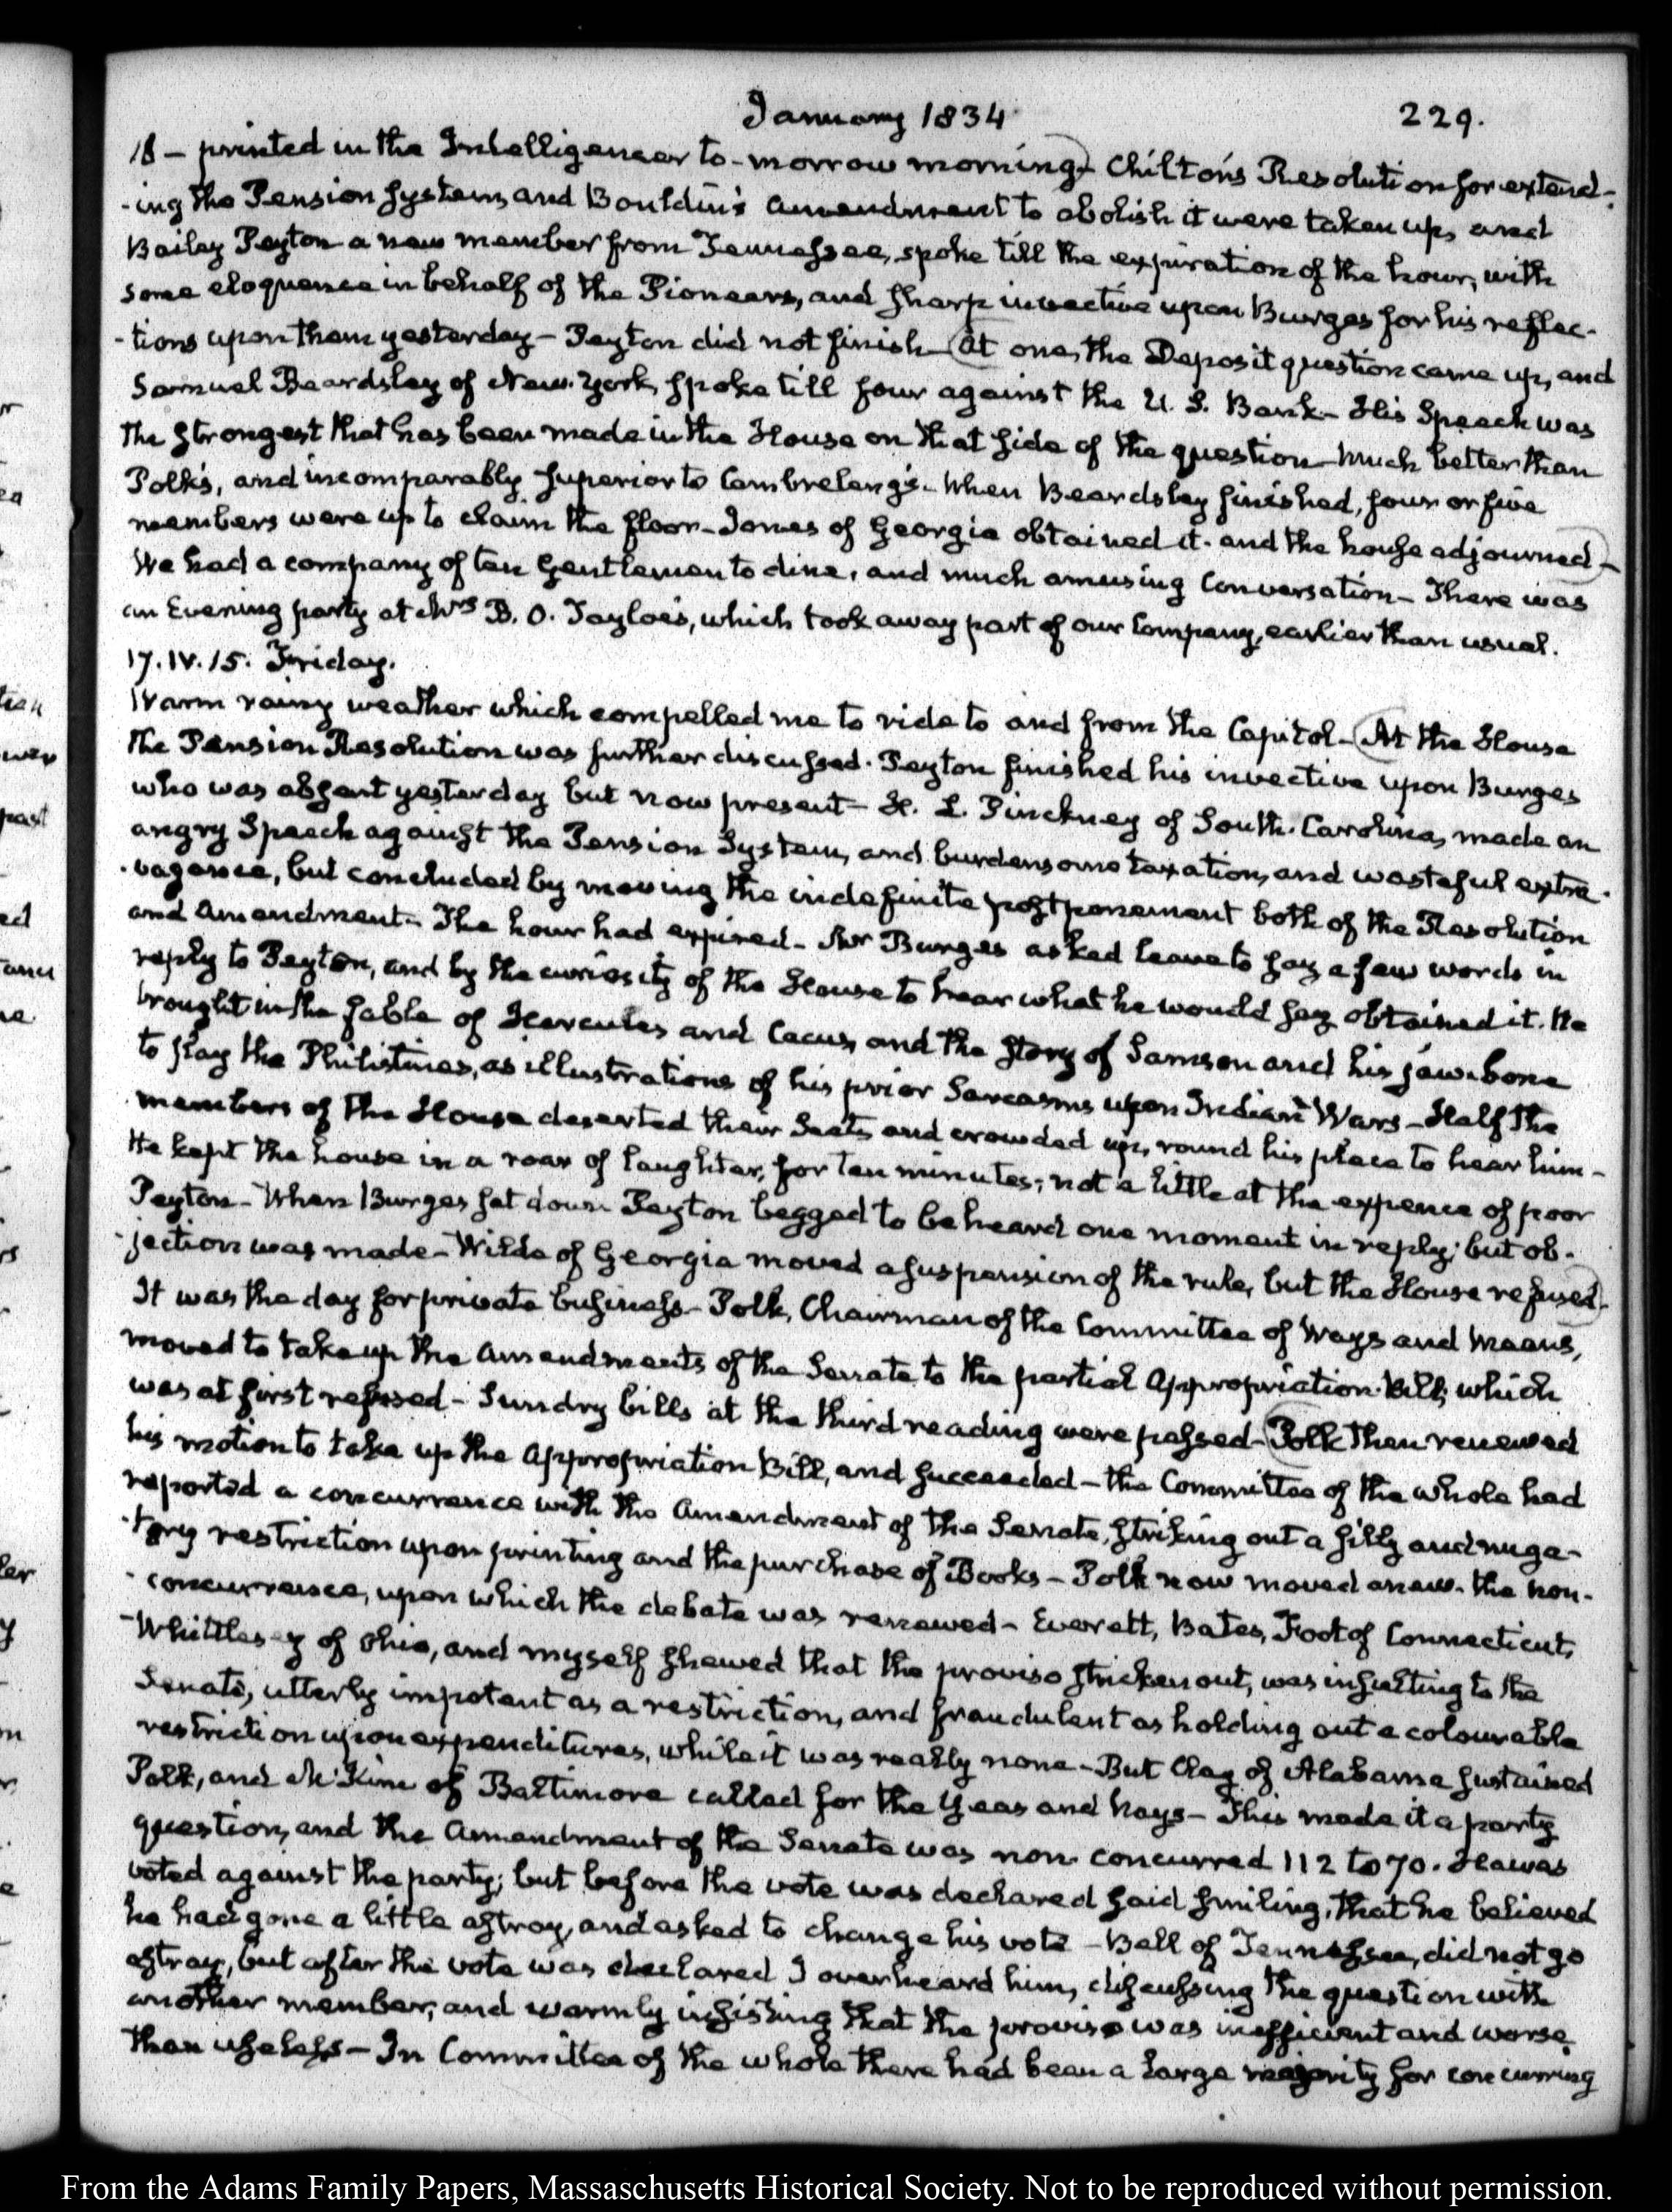 January 1834
229.
18 — printed in the Intelligencer to-morrow morning) Chilton's Resolution for extend-
-ing the Pension System, and Bouldin's amendment to abolish it were taken up, and
Bailey Peyton a new member from Tennessee, spoke till the expiration of the hour, with
some eloquence in behalf of the Pioneers, and sharp invective upon Burges for his reflec-
-tions upon them yesterday — Peyton did not finish — (At one, the Deposit question came up, and
Samuel Beardsley of New-York, spoke till four against the U. S. Bank — His Speech was
the strongest that has been made in the House on that side of the question — Much better than
Polk's, and incomparably superior to Cambreleng's. When Beardsley finished, four or five
members were up to claim the floor — Jones of Georgia obtained it. and the house adjourned) —
We had a company of ten Gentlemen to dine, and much amusing Conversation — There was
an Evening party at Mrs B. O. Tayloe's, which took away part of our Company, earlier than usual.
17. IV. 15. Friday.
Warm rainy weather which compelled me to ride to and from the Capitol — (At the House
the Pension Resolution was further discussed. Peyton finished his invective upon Burges
who was absent yesterday but now present — H. L. Pinckney of South-Carolina, made an
angry Speech against the Pension System, and burdensome taxation, and wasteful extra-
-vagance, but concluded by moving the indefinite postponement both of the Resolution
and Amendment — The hour had expired — Mr Burges asked leave to say a few words in
reply to Peyton, and by the curiosity of the House to hear what he would say obtained it. He
brought in the fable of Hercules and Cacus, and the story of Samson and his jaw-bone
to slay the Philistines, as illustrations of his prior Sarcasms upon Indian Wars — Half the
members of the House deserted their Seats and crowded up, round his place to hear him —
He kept the house in a roar of laughter, for ten minutes; not a little at the expence of poor
Peyton — When Burges sat down Peyton begged to be heard one moment in reply; but ob-
-jection was made — Wilde of Georgia moved a suspension of the rule, but the House refused) —
It was the day for private business — Polk, Chairman of the Committee of Ways and Means,
moved to take up the amendments of the Senate to the partial Appropriation Bill; which
was at first refused — Sundry bills at the third reading were passed — (Polk then renewed
his motion to take up the Appropriation Bill, and succeeded — the Committee of the whole had
reported a concurrence with the Amendment of the Senate, striking out a silly and nuga-
-tory restriction upon printing and the purchase of Books — Polk now moved anew. the non-
-concurrence, upon which the debate was renewed — Everett, Bates, Foot of Connecticut,
Whittlesey of Ohio, and myself shewed that the proviso stricken out, was insulting to the
Senate, utterly impotent as a restriction, and fraudulent as holding out a colourable
restriction upon expenditures, while it was really none — But Clay of Alabama sustained
Polk, and McKim of Baltimore called for the Yeas and Nays — This made it a party
question, and the Amendment of the Senate was non-concurred 112 to 70. Hawes
voted against the party; but before the vote was declared said smiling, that he believed
he had gone a little astray, and asked to change his vote — Bell of Tennessee, did not go
astray, but after the vote was declared I overheard him, discussing the question with
another member, and warmly insisting that the proviso was inefficient and worse
than useless — In Committee of the whole there had been a large majority for concurring
From the Adams Family Papers, Massachusetts Historical Society. Not to be reproduced without permission.